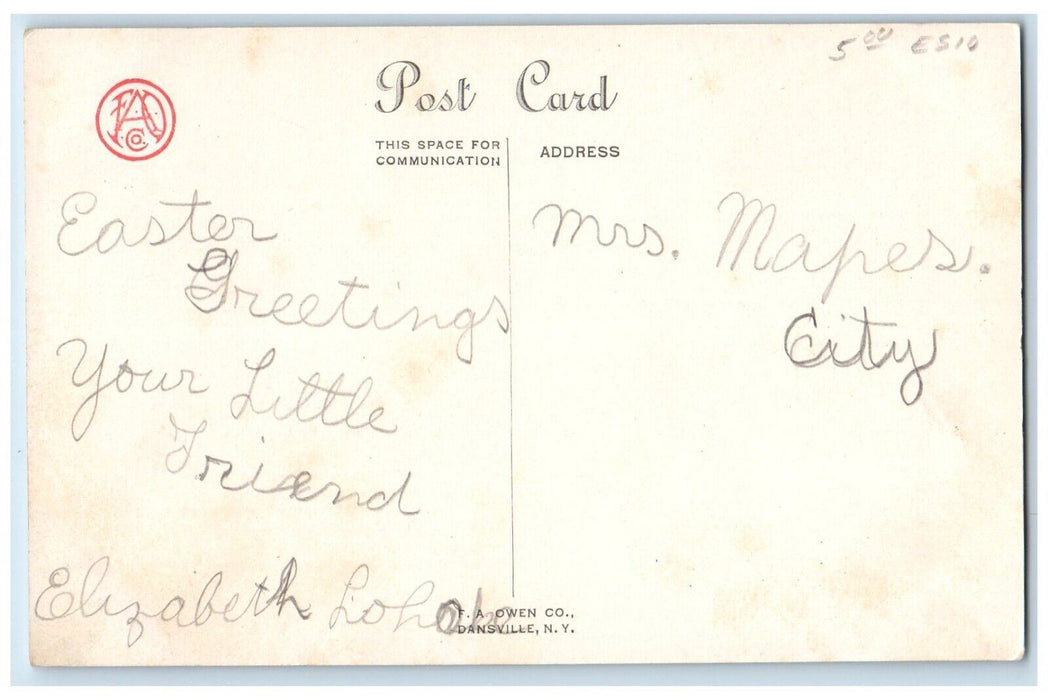 5⁰⁰ ES10
FA
Co.
Post Card
THIS SPACE FOR
COMMUNICATION
ADDRESS
Easter
Greetings
Your Little
Friend
Elizabeth
Mrs. Mapes.
City
F. A. OWEN CO.,
DANSVILLE, N. Y.